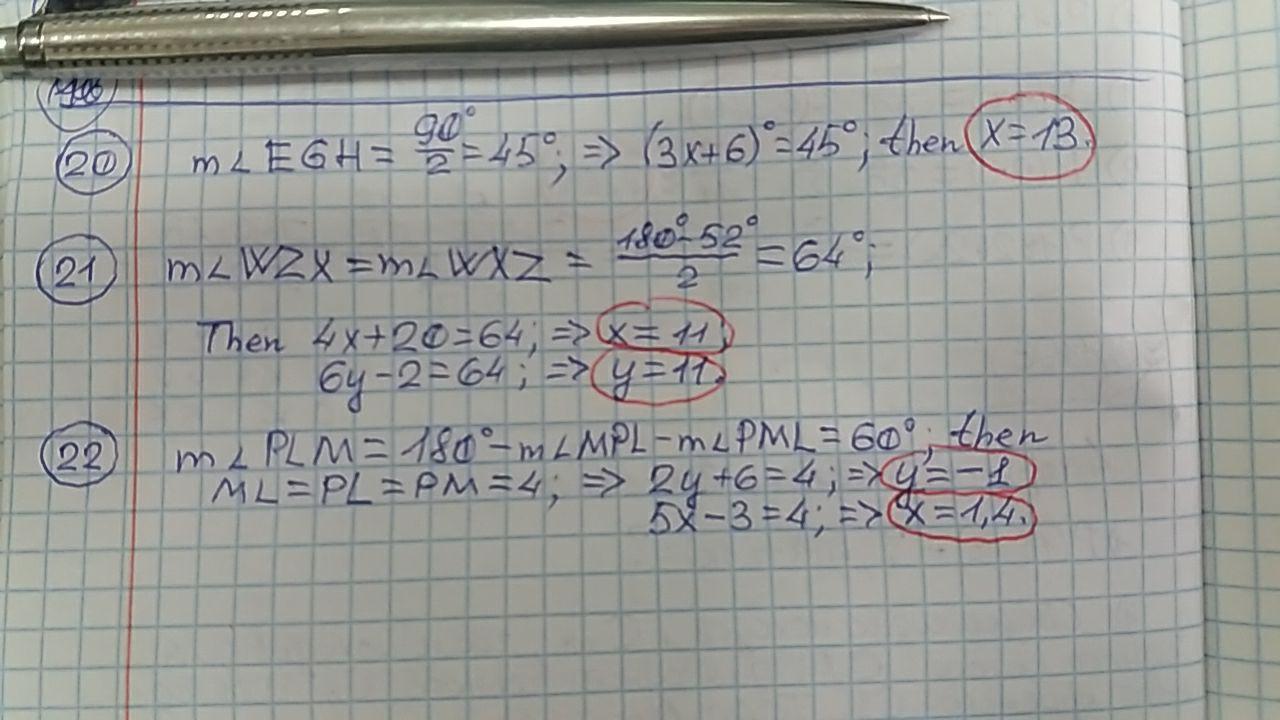 20 m∠EGH = 90°/2 = 45°; => (3x+6)° = 45°; then x = 13.
21 m∠WZX = m∠WXZ = 180°-52°/2 = 64°;
Then 4x+20=64; => x = 11;
6y-2=64; => y=11.
22 m∠PLM = 180°-m∠MPL-m∠PML = 60°; then
ML=PL=PM=4; => 2y+6=4; => y=-1
5x-3=4; => x=1,4.